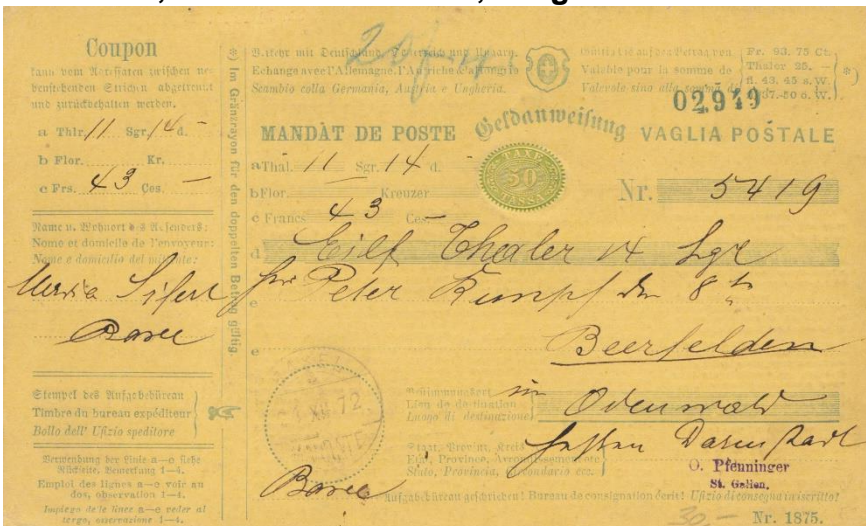 Coupon
kann vom Adressaten zwischen ne-
benstehenden Strichen abgetrennt
und zurückbehalten werden.
a Thlr. 11 Sgr. 14 d. –
b Flor. Kr.
c Frs. 43 Ces. –
Name u. Wohnort des Absenders:
Nome et domicile de l'envoyeur:
Nome e domicilio del mittente:
Maria
Stempel des Aufgabebüreau
Timbre du bureau expéditeur
Bollo dell' Ufizio speditore
Verwendung der Linie a—e siehe
Rückseite, Bemerkung 1—4.
Emploi des lignes a—e voir au
dos, observation 1—4.
Impiego delle linee a—e veder al
tergo, osservazione 1—4.
*) Im Gränzrayon für den doppelten Betrag gültig.
Verkehr mit Deutschland, Österreich und Ungarn.
Echange avec l'Allemagne, l'Autriche & la Hongrie
Scambio colla Germania, Austria e Ungheria.
Gültig bis auf den Betrag von
Valable pour la somme de
Valevole sino alla somma di
Fr. 93. 75 Ct.
Thaler 25. –
fl. 43. 45 s. W.
*)
02949
MANDAT DE POSTE Geldanweisung VAGLIA POSTALE
TAXE
50
TASSA
a Thal. 11 Sgr. 14 d.
b Flor. Kreuzer
c Francs 43 Ces. –
Nr. 5419
d Eilf Thaler 14 Sgr
e Peter den 8
e Beerfelden
XII 72
Bestimmungsort
Lieu de destination
Luogo di destinazione
im Odenwald
Staat, Provinz, Kreis
Etat, Province, Arrondissement etc.
Stato, Provincia, Circondario ecc.
Hessen Darmstadt
O. Pfenninger
St. Gallen.
Aufgabebüreau geschrieben! Bureau de consignation écrit! Ufizio di consegna in iscritto!
30 – Nr. 1875.